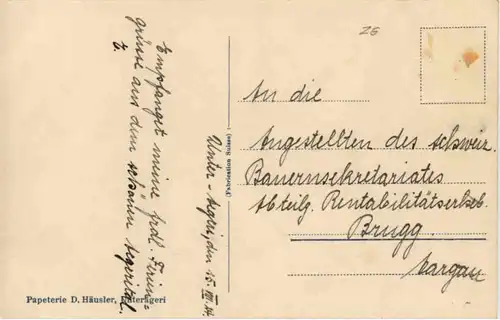 ZG
Unter-Aegeri, den 15. VII. 14.
Empfanget meine frdl. Ferien-
grüsse aus dem schönen Aegerital.
Z.
An die
Angestellten des schweiz.
Bauernsekretariates
Abteilg. Rentabilitätserheb.
Brugg
Aargau
(Fabrication Suisse)
Papeterie D. Häusler, Unterägeri